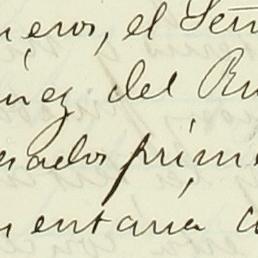 neros, el Señ
úñez del Ru
esados prime
mentaria a